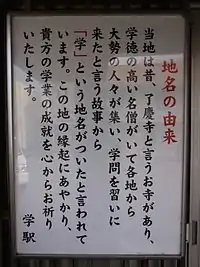 地名の由来
当地は昔、了慶寺と言うお寺があり、
学徳の高い名僧がいて各地から
大勢の人々が集い、学問を習いに
来たと言う故事から
「学」という地名がついたと言われて
います。この地の縁起にあやかり、
貴方の学業の成就を心からお祈り
いたします。
学駅